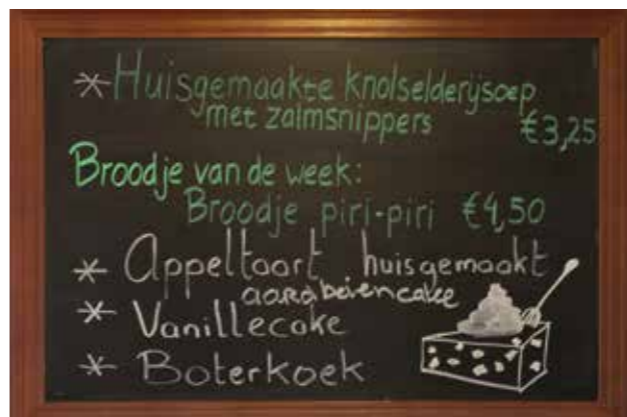 * Huisgemaakte knolselderijsoep
met zalmsnippers €3,25
Broodje van de week:
Broodje piri-piri €4,50
* Appeltaart huisgemaakt
aardbeiencake
* Vanillecake
* Boterkoek